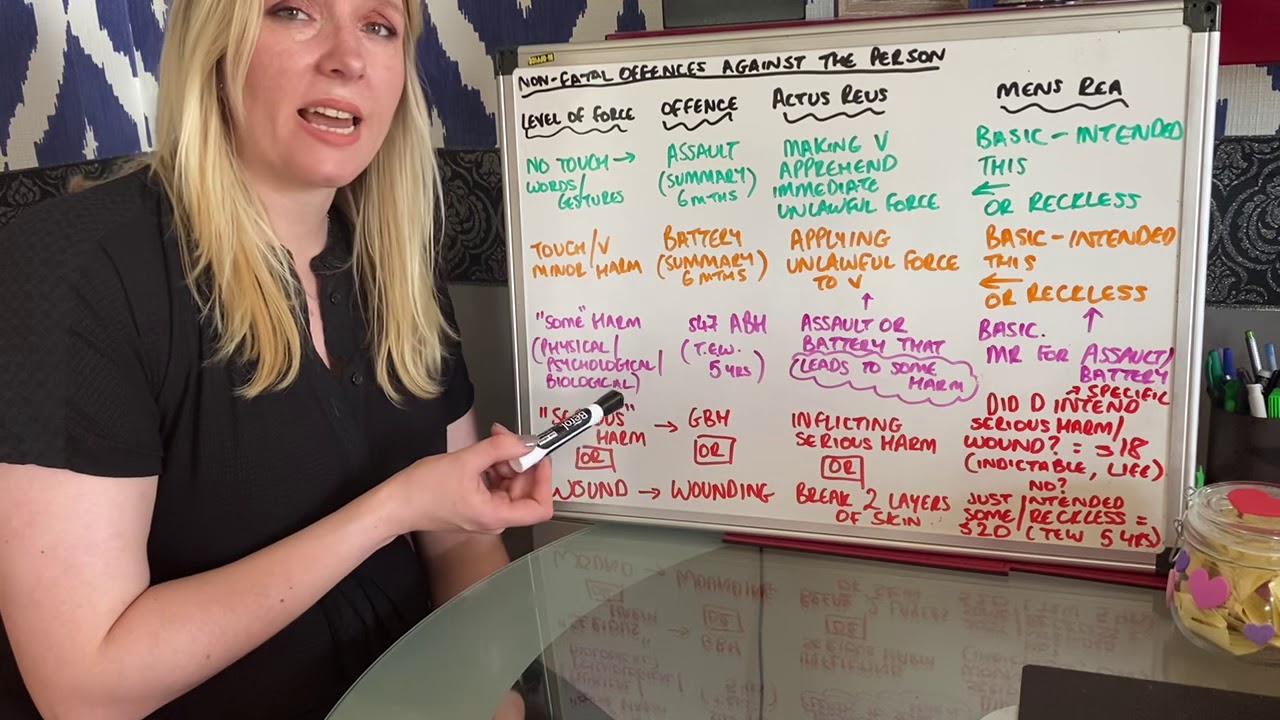 NON-FATAL OFFENCES AGAINST THE PERSON
LEVEL OF FORCE
OFFENCE
ACTUS REUS
MENS REA
NO TOUCH →
WORDS/
GESTURES
ASSAULT
(SUMMARY)
6 MTHS
MAKING V
APPREHEND
IMMEDIATE
UNLAWFUL FORCE
BASIC - INTENDED
THIS
←
OR RECKLESS
TOUCH/V
MINOR HARM
BATTERY
(SUMMARY)
6 MTHS
APPLYING
UNLAWFUL FORCE
TO V
BASIC - INTENDED
THIS
←
OR RECKLESS
"SOME" HARM
(PHYSICAL/
PSYCHOLOGICAL/
BIOLOGICAL)
S47 ABH
(T.E.W.
5 YRS)
↑
ASSAULT OR
BATTERY THAT
(LEADS TO SOME
HARM
BASIC. ↑
MR FOR ASSAULT/
BATTERY
HARM
OR
→ GBH
OR
INFLICTING
SERIOUS HARM
OR
→ SPECIFIC
DID D INTEND
SERIOUS HARM/
WOUND? = S18
(INDICTABLE, LIFE)
NO?
WOUND → WOUNDING
BREAK 2 LAYERS
OF SKIN.
JUST INTENDED
SOME/RECKLESS =
S20 (TEW 5 YRS)
Berol